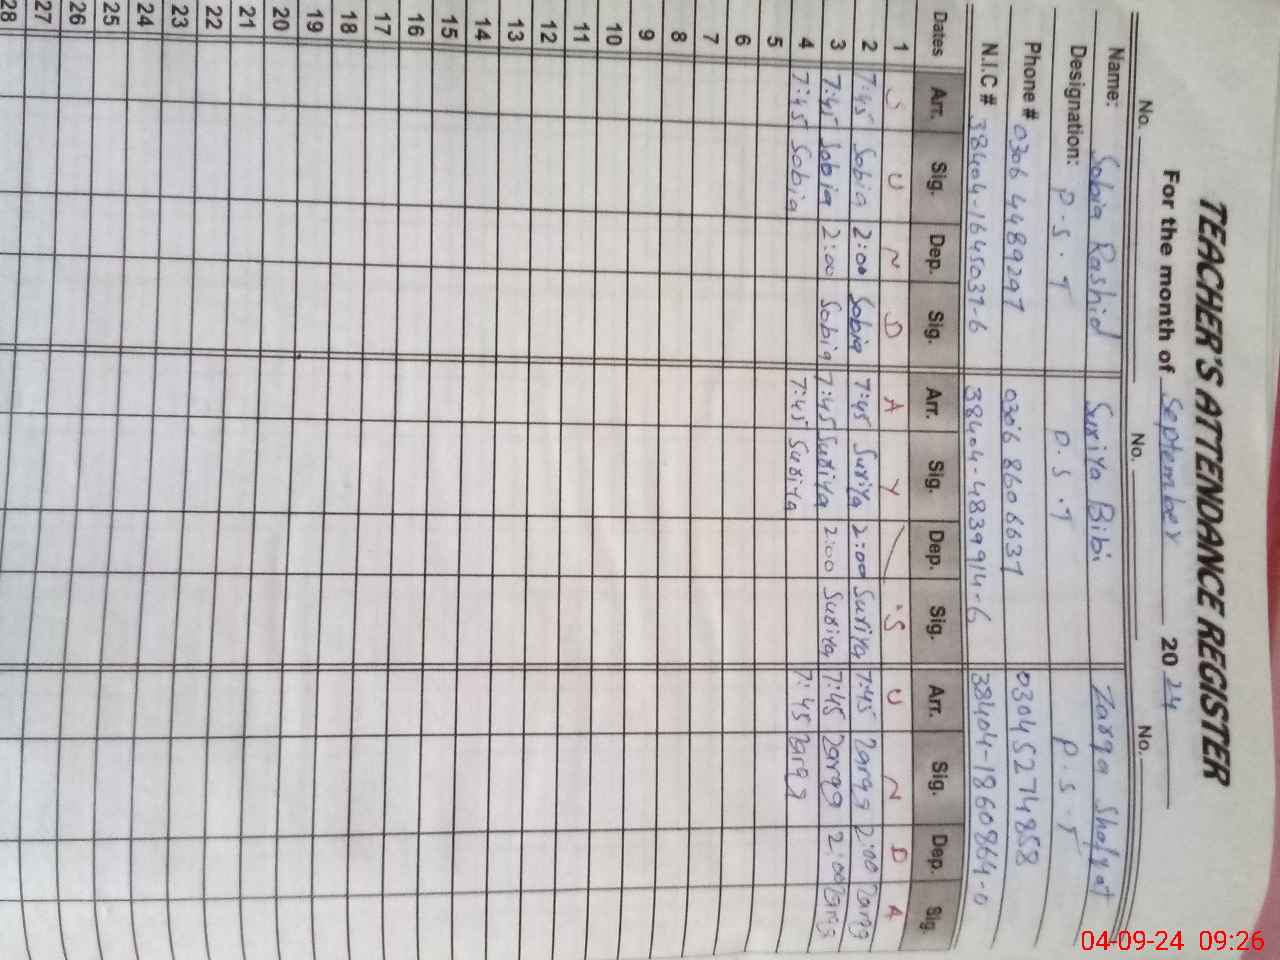 TEACHER'S ATTENDANCE REGISTER
For the month of September 2024
No. No. No.
Name: Sobia Rashid Suriya Bibi Zarqa Shafqat
Designation: P.S.T P.S.T P.S.T
Phone # 0306 4489297 0306 8606631 0304 5274858
N.I.C # 38404-1645037-6 38404-4839914-6 38404-1860864-0
Dates Arr. Sig. Dep. Sig. Arr. Sig. Dep. Sig. Arr. Sig. Dep. Sig.
1 S U N D A Y S U N D A
2 7:45 Sobia 2:00 Sobia 7:45 Suriya 2:00 Suriya 7:45 Zarqa 2:00 Zarqa
3 7:45 Sobia 2:00 Sobia 7:45 Suriya 2:00 Suriya 7:45 Zarqa 2:00 Zarqa
4 7:45 Sobia 7:45 Suriya 7:45 Zarqa
5
6
7
8
9
10
11
12
13
14
15
16
17
18
19
20
21
22
23
24
25
26
27
28
04-09-24 09:26